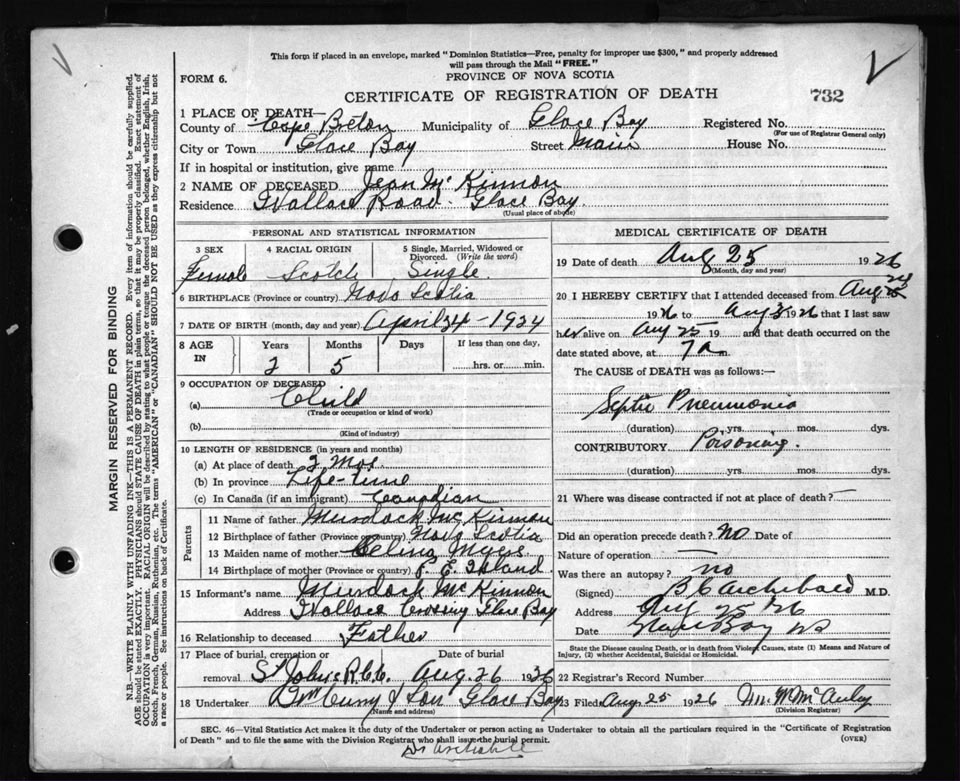 This form if placed in an envelope, marked "Dominion Statistics—Free, penalty for improper use $300," and properly addressed
will pass through the Mail "FREE."
FORM 6.
PROVINCE OF NOVA SCOTIA
CERTIFICATE OF REGISTRATION OF DEATH
732
1 PLACE OF DEATH—
County of Cape Breton Municipality of Glace Bay Registered No.
(For use of Registrar General only)
City or Town Glace Bay Street Main House No.
If in hospital or institution, give name
2 NAME OF DECEASED Jean McKinnon
Residence Wallace Road - Glace Bay
(Usual place of abode)
PERSONAL AND STATISTICAL INFORMATION
3 SEX Female
4 RACIAL ORIGIN Scotch
5 Single, Married, Widowed or Divorced. (Write the word) Single
6 BIRTHPLACE (Province or country) Nova Scotia
7 DATE OF BIRTH (month, day and year) April 24 - 1924
8 AGE IN
Years 2
Months 5
Days
If less than one day,
hrs. or min.
9 OCCUPATION OF DECEASED
(a) Child
(Trade or occupation or kind of work)
(b)
(Kind of industry)
10 LENGTH OF RESIDENCE (in years and months)
(a) At place of death 2 Mos
(b) In province Life-time
(c) In Canada (if an immigrant) Canadian
Parents
11 Name of father Murdock McKinnon
12 Birthplace of father (Province or country) Nova Scotia
13 Maiden name of mother Celina Myers
14 Birthplace of mother (Province or country) P. E. Island
15 Informant's name Murdock McKinnon
Address Wallace Crossing Glace Bay
16 Relationship to deceased Father
17 Place of burial, cremation or removal St Johns R.C.C.
Date of burial Aug. 26 1926
18 Undertaker & Son Glace Bay
(Name and address)
MEDICAL CERTIFICATE OF DEATH
19 Date of death Aug 25 1926
(Month, day and year)
20 I HEREBY CERTIFY that I attended deceased from Aug
1926 to Aug 1926 that I last saw
her alive on Aug 25 19 and that death occurred on the
date stated above, at 7 a m.
The CAUSE of DEATH was as follows:—
Septic Pneumonia
(duration) yrs. mos. dys.
CONTRIBUTORY Poisoning.
(duration) yrs. mos. dys.
21 Where was disease contracted if not at place of death? —
Did an operation precede death? No Date of
Nature of operation —
Was there an autopsy? no
(Signed) Archibald M.D.
Address Aug 25 26
Date Glace Bay NS
State the Disease causing Death, or in death from Violent Causes, state (1) Means and Nature of
Injury, (2) whether Accidental, Suicidal or Homicidal.
22 Registrar's Record Number
23 Filed Aug 25 1926
(Division Registrar)
SEC. 46—Vital Statistics Act makes it the duty of the Undertaker or person acting as Undertaker to obtain all the particulars required in the "Certificate of Registration
of Death" and to file the same with the Division Registrar who shall issue the burial permit.
(OVER)
MARGIN RESERVED FOR BINDING
N.B.—WRITE PLAINLY WITH UNFADING INK—THIS IS A PERMANENT RECORD. Every item of information should be carefully supplied.
AGE should be stated EXACTLY. PHYSICIANS should STATE CAUSE OF DEATH in plain terms, so that it may be properly classified. Exact statement of
OCCUPATION is very important. RACIAL ORIGIN will be described by stating to what people or tongue the deceased person belonged, whether English, Irish,
Scotch, French, German, Russian, Ruthenian, etc. The terms "AMERICAN" or "CANADIAN" SHOULD NOT BE USED as they express citizenship but not
a race or people. See instructions on back of Certificate.